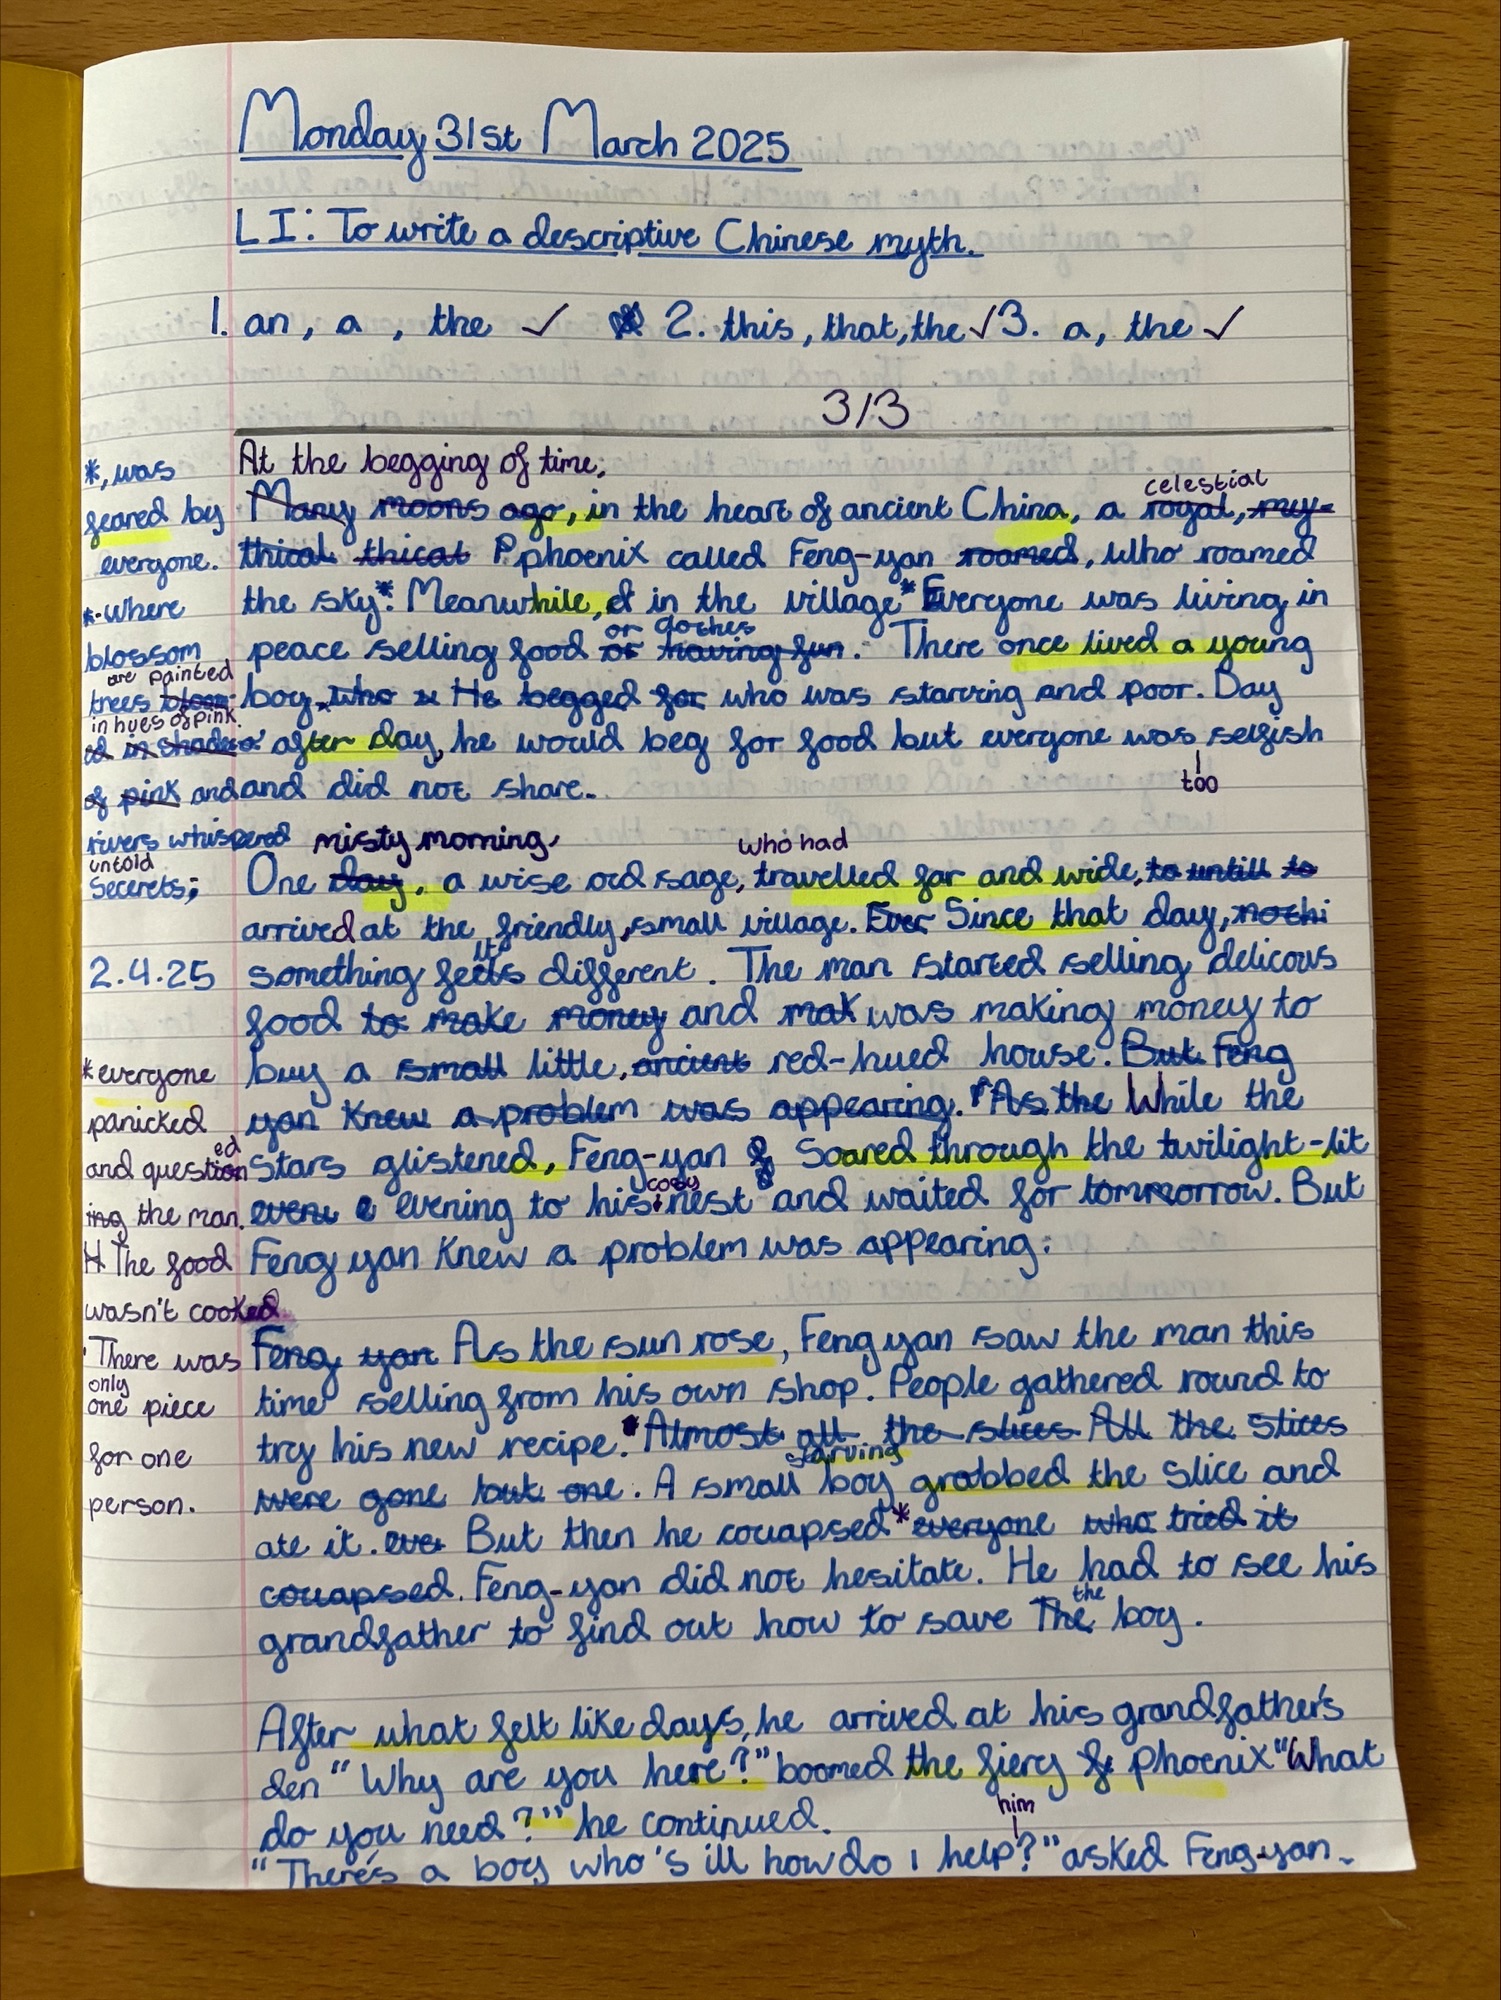 Monday 31st March 2025
LI: To write a descriptive Chinese myth.
1. an, a, the ✓ 2. this, that, the ✓ 3. a, the ✓
3/3
At the begging of time,
celestial
Many moons ago, in the heart of ancient China, a royal, my-
thical thical Pphoenix called Feng-yan roamed, who roamed
the sky*. Meanwhile, in the village* Everyone was living in
or clothes
peace selling food or having fun. There once lived a young
boy, who He begged for who was starving and poor. Day
after day, he would beg for food but everyone was selfish
too
and did not share.
*, was
feared by
everyone.
*. Where
blossom
are painted
trees
in hues of pink.
in shades
of pink and
rivers whispered
untold
secerets;
misty morning,
who had
One day, a wise old sage, travelled far and wide, to untill to
arrived at the friendly, small village. Ever Since that day, nothi
2.4.25
something feels different. The man started selling delicous
food to make money and mak was making money to
buy a small little, ancient red-hued house. But Feng
yan knew a problem was appearing. As the While the
stars glistened, Feng-yan Soared through the twilight-lit
cosy
even e evening to his nest and waited for tommorrow. But
Feng yan knew a problem was appearing:
*everyone
panicked
ed
and question
ing the man.
H The food
wasn't cooked
There was
only
one piece
for one
person.
Feng yan As the sun rose, Feng yan saw the man this
time selling from his own shop. People gathered round to
try his new recipe.* Almost all the slices All the slices
starving
were gone but one. A small boy grabbed the slice and
ate it. eve But then he coualpsed* everyone who tried it
coualpsed. Feng-yan did not hesitate. He had to see his
the
grandfather to find out how to save The boy.
After what felt like days, he arrived at his grandfather's
den "Why are you here?" boomed the fiery phoenix "What
do you need?" he continued.
him
"There's a boy who's ill how do I help?" asked Feng-yan.